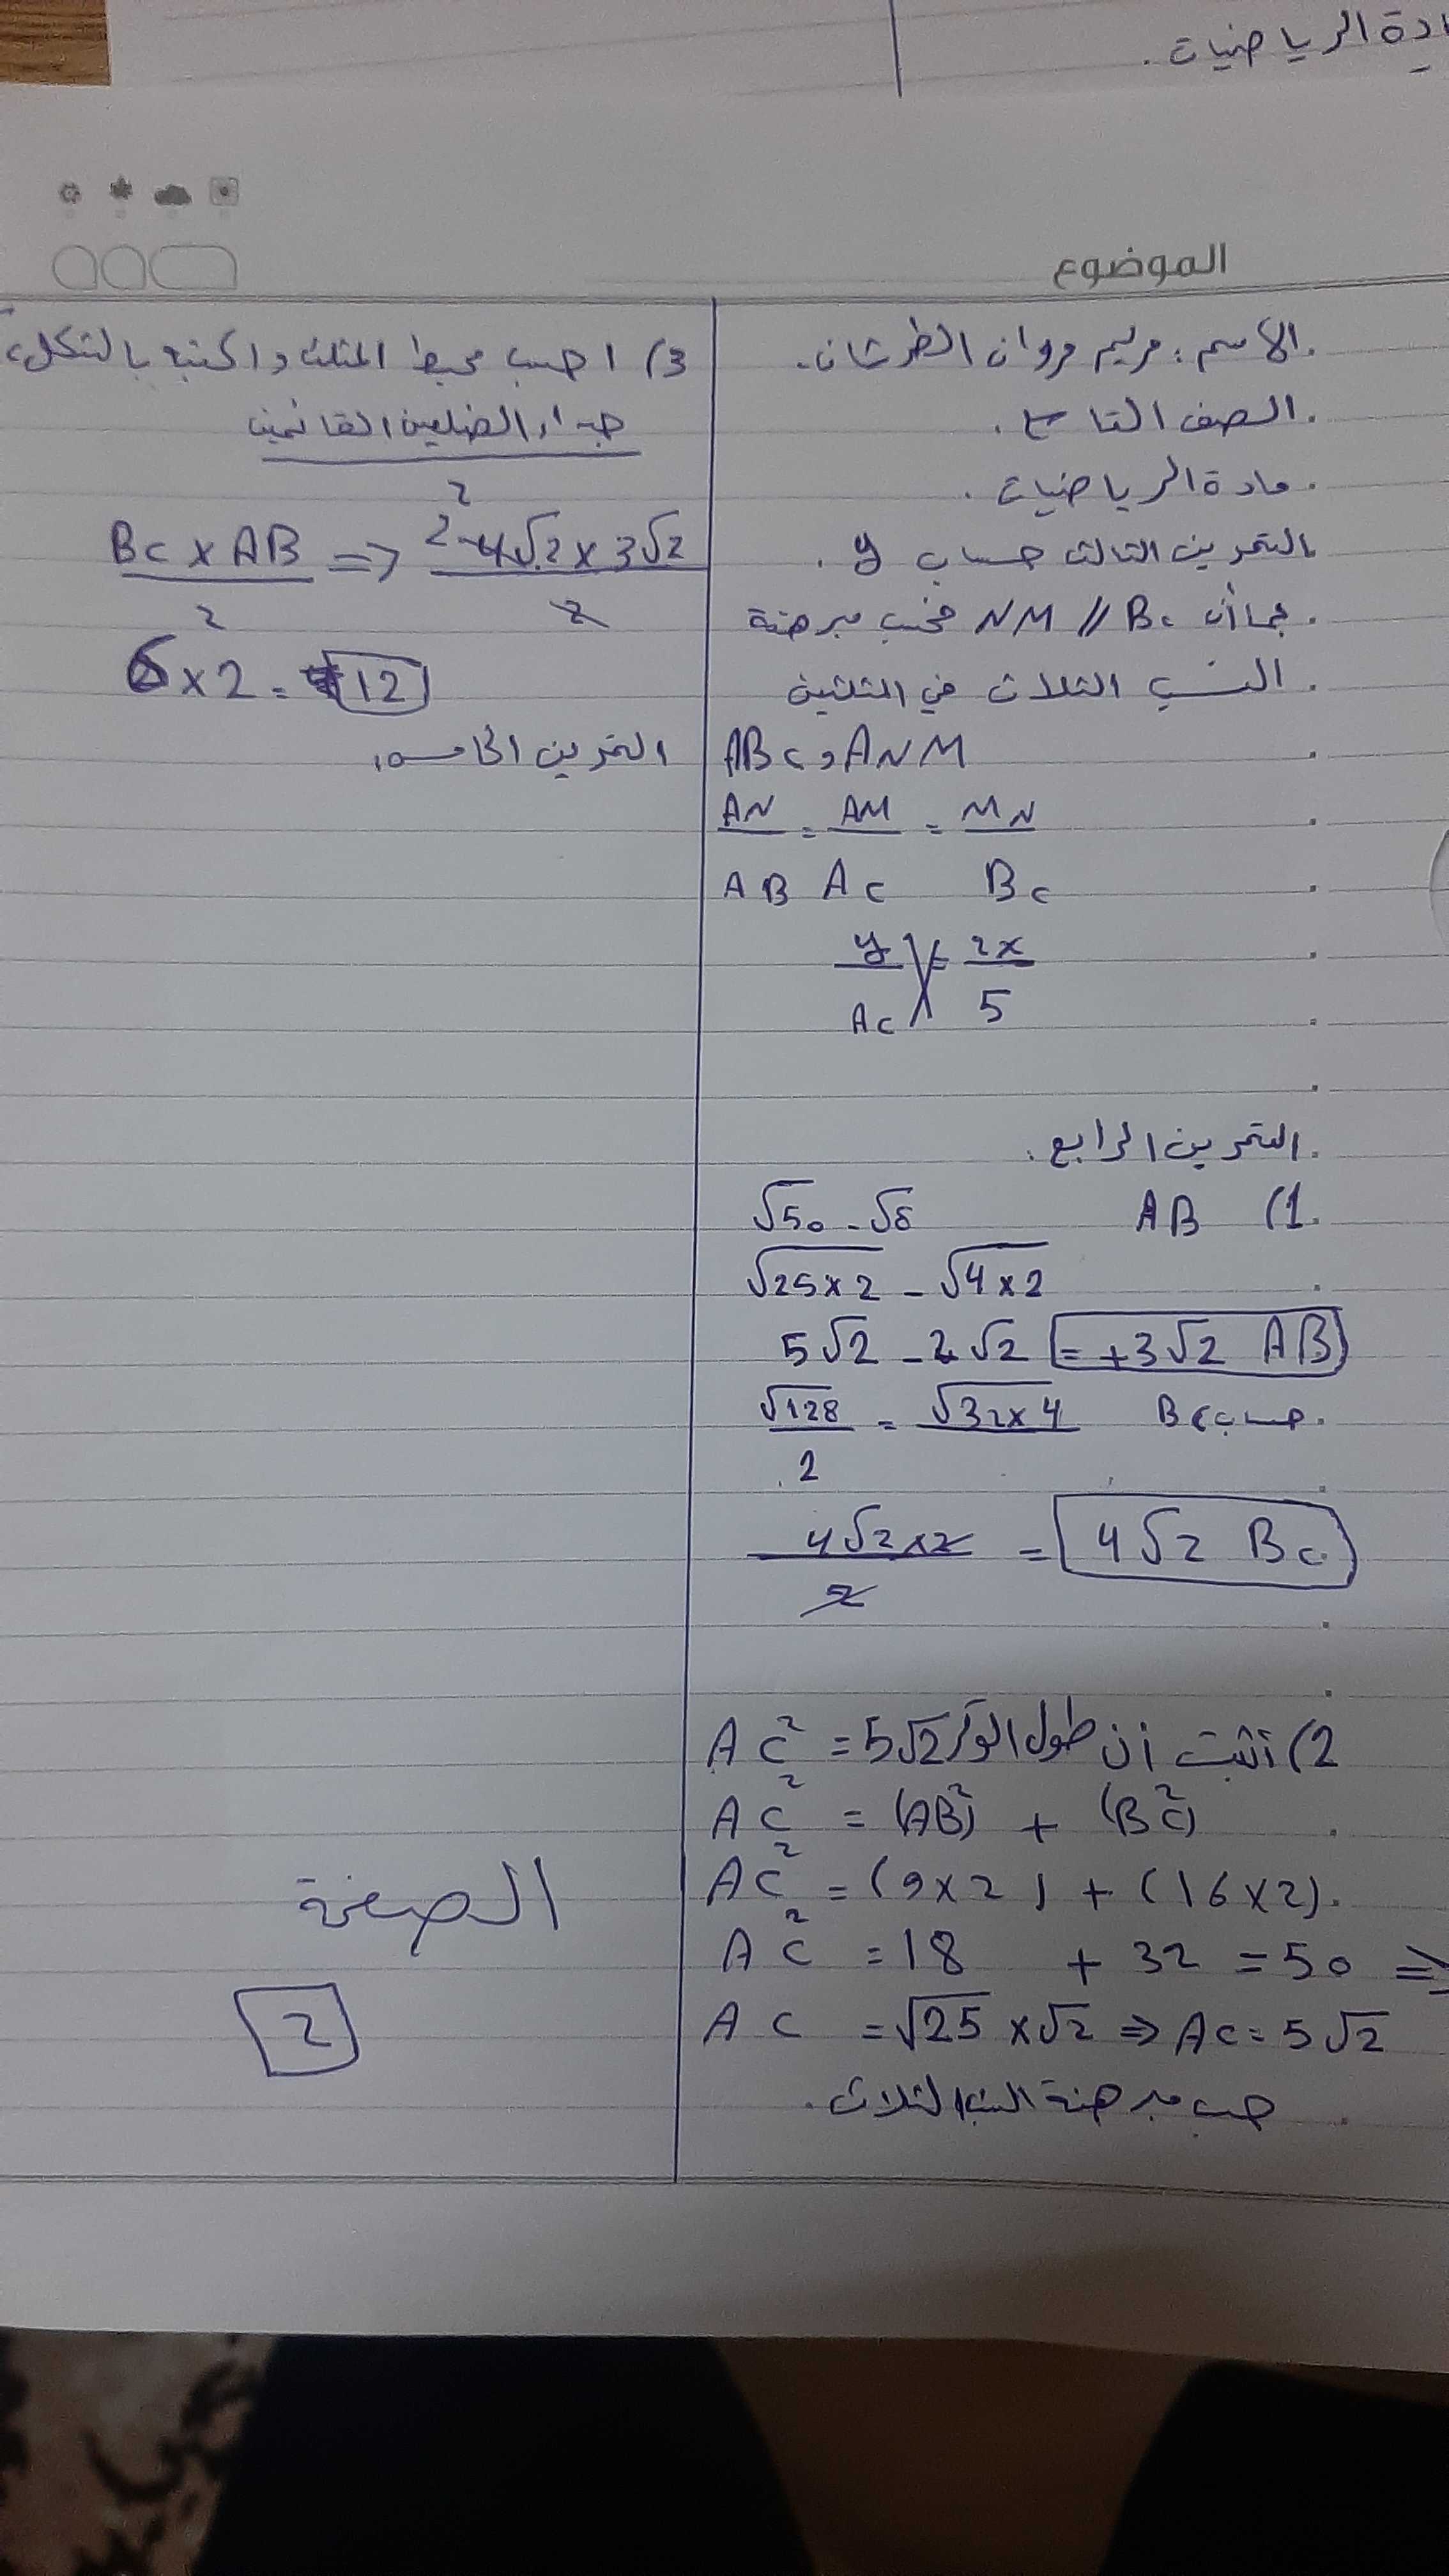 مادة الرياضيات.
الموضوع
الاسم: مريم مروان الطرشان.
الصف التاسع.
مادة الرياضيات.
التمرين الثالث حساب y.
بما أن NM // BC فحسب مبرهنة
النسب الثلاث في المثلثين
ABC و ANM
AN/AB = AM/AC = MN/BC
y/AC = 2x/5
التمرين الرابع.
1) AB √50 - √8
√25×2 - √4×2
5√2 - 2√2 = +3√2 AB
حساب BC √128/2 = √32×4
4√2×2/2 = 4√2 BC
2) أثبت أن طول الوتر AC² = 5√2
AC² = (AB²) + (BC²)
AC² = (9×2) + (16×2).
AC² = 18 + 32 = 50 ⇒
AC = √25 × √2 ⇒ AC = 5√2
حسب مبرهنة النسب الثلاث.
3) احسب محيط المثلث واكتبه بالشكل،
جداء الضلعين القائمين
2
BC × AB/2 ⇒ 2 4√2 × 3√2/2
6×2 = 12
التمرين الخامس.
الصفحة
2